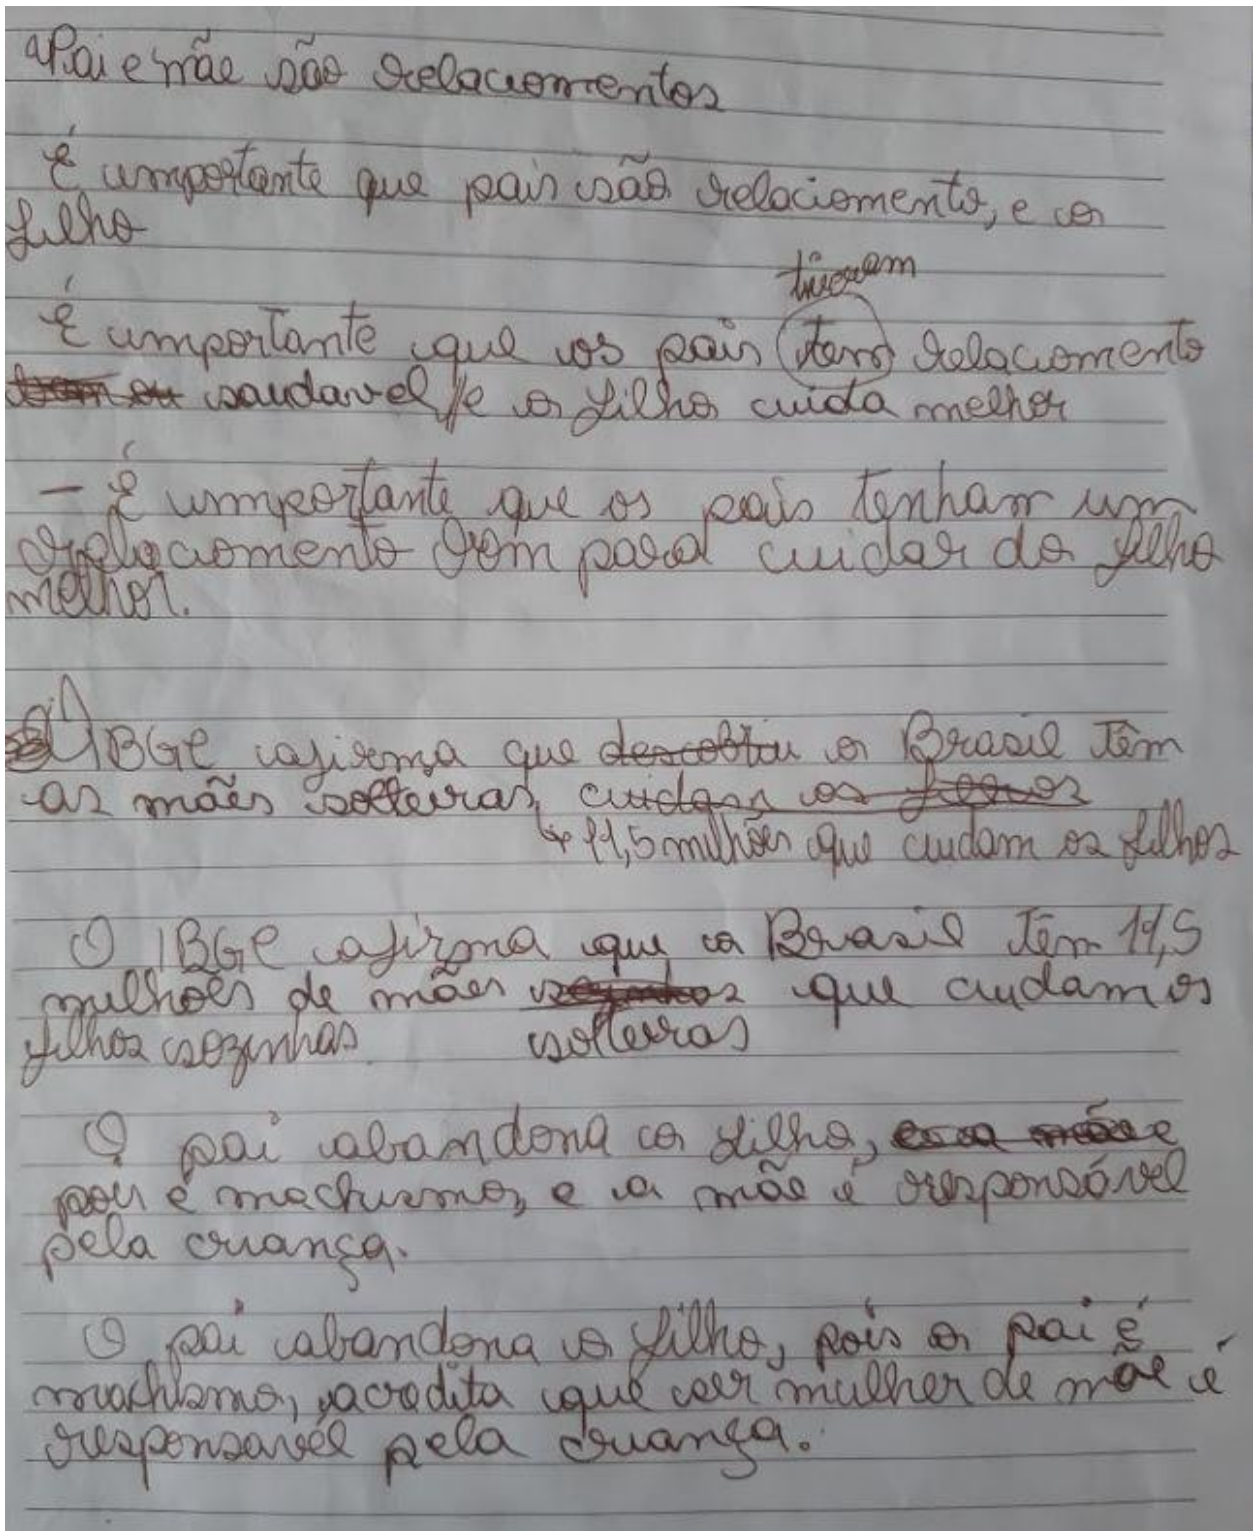 Pai e mãe são relacionamentos
É importante que pais são relacionamento, e o
filho
tiveram
É importante que os pais tem relacionamento
saudavel e o filho cuida melhor
- É importante que os pais tenham um
relacionamento bom para cuidar do filho
melhor.
IBGE afirma que descobriu o Brasil têm
as mães solteiras, cuidam os filhos
11,5 milhões que cuidam os filhos
O IBGE afirma que o Brasil têm 11,5
milhões de mães sozinhas que cuidam os
filhos sozinhas. solteiras
O pai abandona o filho, essa mãe
pois é machismo, e a mãe é responsável
pela criança.
O pai abandona o filho, pois o pai é
machismo, acredita que ser mulher de mãe é
responsavél pela criança.